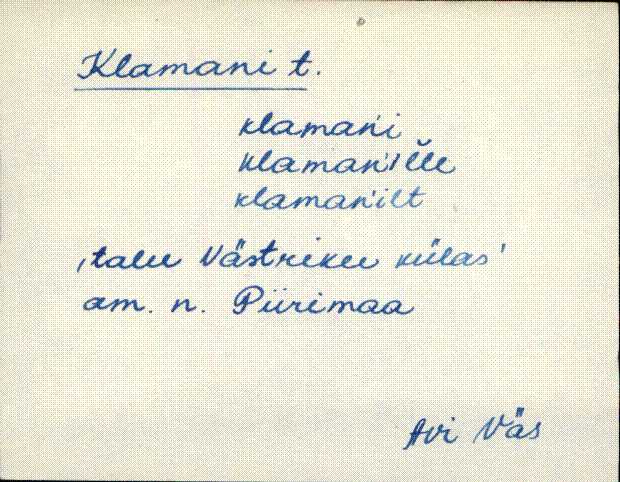 Klamani t.
klaman'i
klaman'ille
klaman'ilt
‚talu Västriku külas’
am. n. Piirimaa
Avi Väs